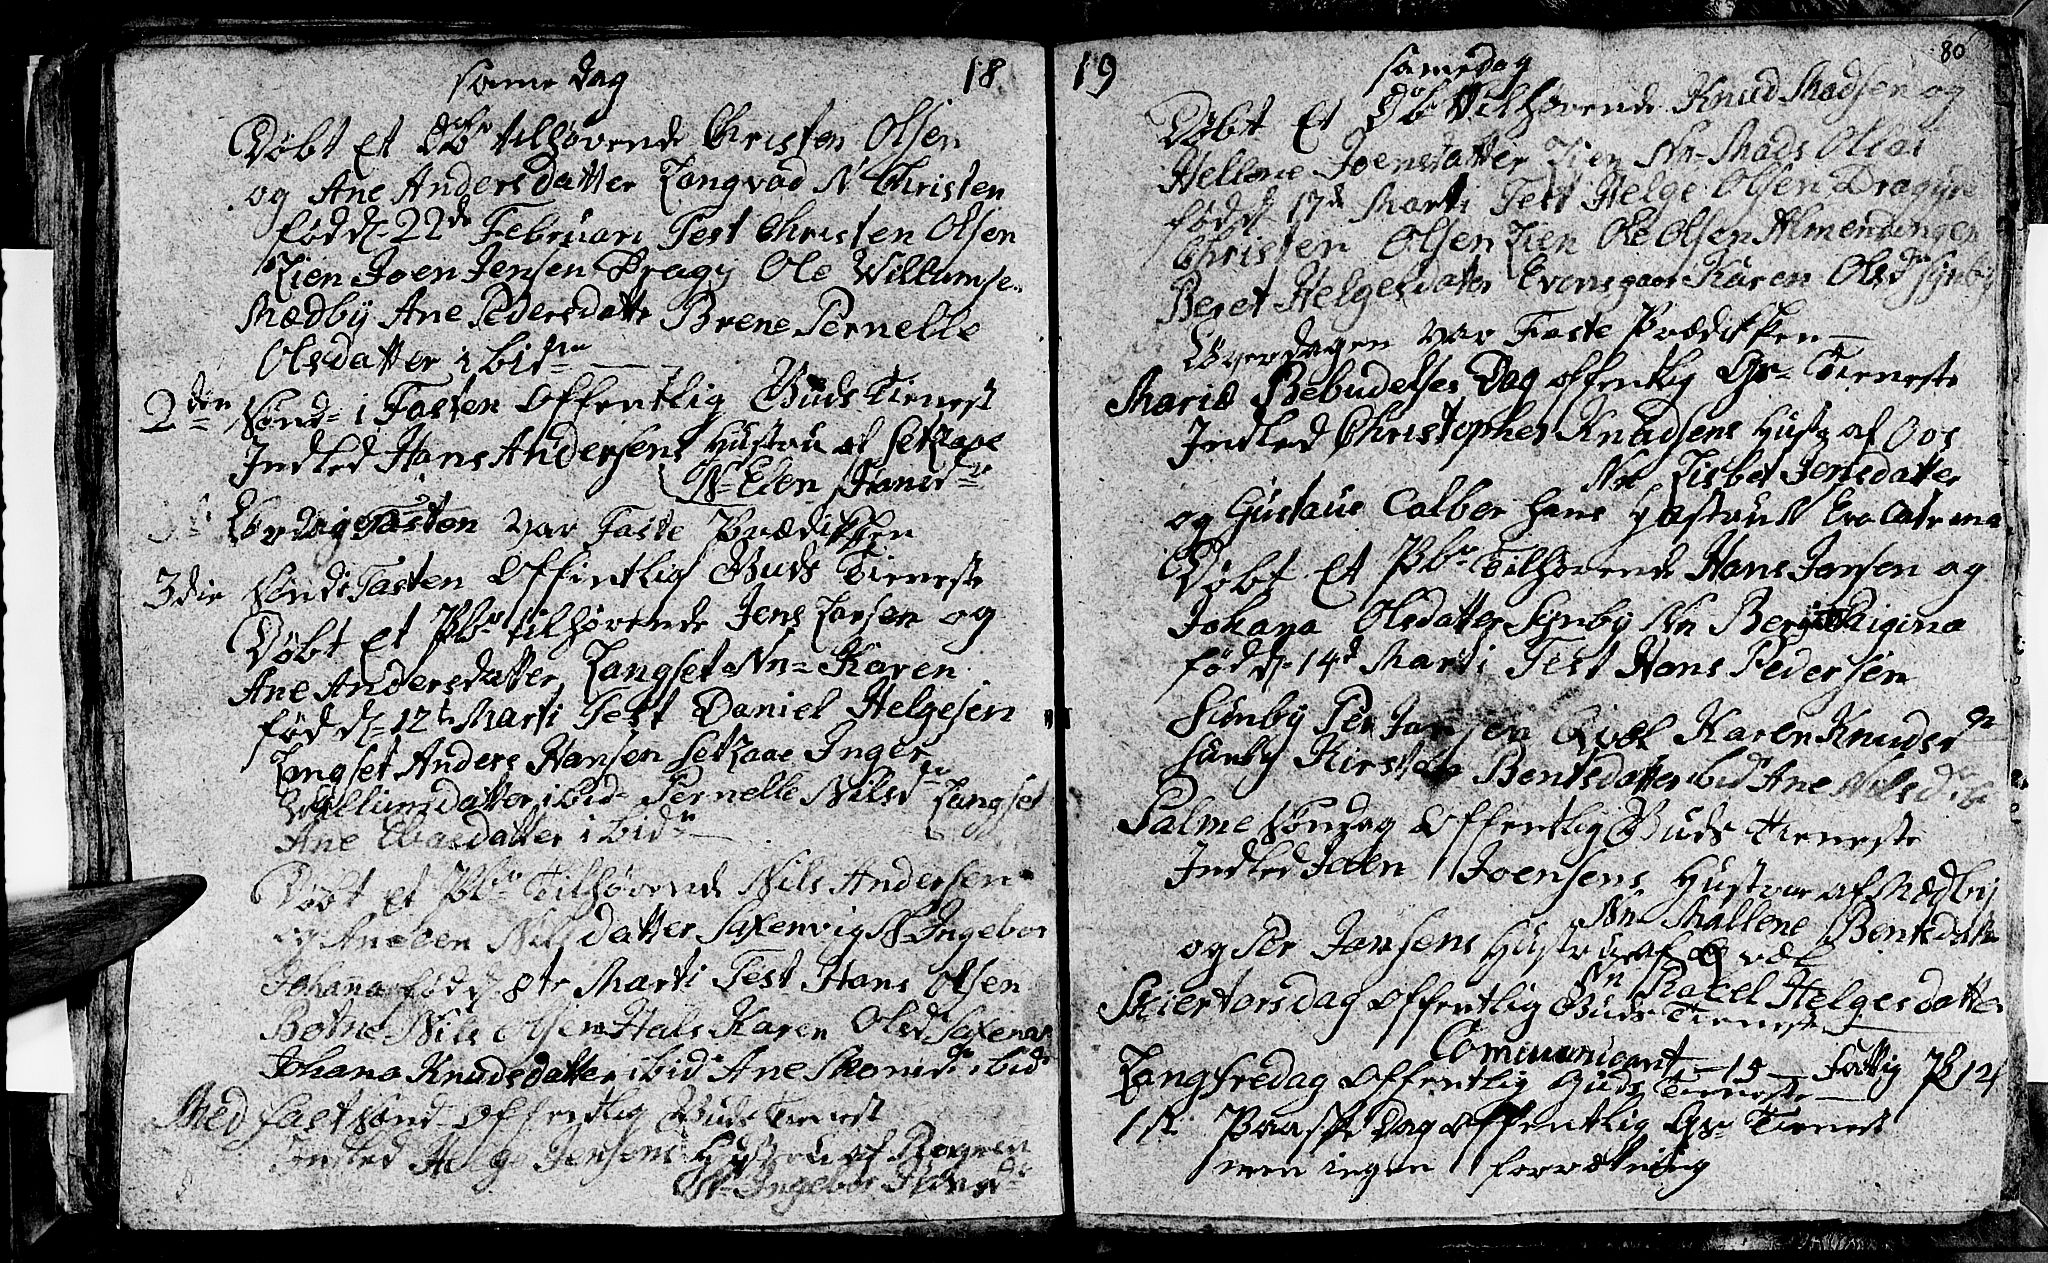 18
same dag
Døbt Et Db tilhørende Christen Olsen
og Ane Andersdatter Langvad N Christen
fød d 22de Februari Test Christen Olsen
Lien Joen Jensen Dragÿ Ole Willumse
Mædbÿ Ane Pedersdattr Brene Pernelle
Olsdatter ibidm
2den Sønd i Fasten offentlig Guds Tienest
Indled Hans Andersens Hustru af Setzaae
N Elen Hansdr
Fasten var Faste Prædikken
3die Sønd i Fasten offintlig Guds Tieneste
Døbt Et Pbr tilhørende Jens Larsen og
Ane Andersdatter Langset Nn Karen
fød d 12te Marti Test Daniel Helgesen
Langset Anders Hansen Setzaae Inger
Willumsdatter ibid Pernelle Nilsd Langset
Ane datter ibidm
Døbt et Pbr Tilhørende Nils Andersen
og Ane Nilsdatter Saxenvig N Ingebor
Johana fød d 8te Marti Test Hans Olsen
Botne Nils Olsen Hals Karen Olsd Saxenv
Johana Knudsdatter ibid Ane ibid
Med fast sønd offentlig Guds Tienest
Indled Jensens Hustru af
N Ingebor Hansdr
19
80
same dag
Døbt Et Db tilhørende Knud Madsen og
Hellene Joensdatter Lien Nn Mads Olai
fød d 17d Marti Test Helge Olsen Dragÿe
Christen Olsen Lien Ole Olsen Almendingen
Beret Helgesdatter Evensgaar Karen Olsdtr Synbÿ
Løverdagen var Faste Prædikken
Mariæ Bebudelses Dag offentlig Gs Tieneste
Indled Christopher Knudsens Hustr af Oos
Nn Lisbet Jensdatter
og Gustaus Calber hans Hustrue Eva Catrina
Døbt Et Pbr Tilhørende Hans Jansen og
Johana Olsdatter Synbÿ Nn Rigina
fød d 14d Marti Test Hans Pedersen
Sunbÿ Per Jansen Qvæl Karen Knudsdr
Sunby Kirsten Bentsdatter ibid Ane Nilsd ib
Palme søndag offentlig Guds Tieneste
Indled Joen Joensens Hustrue af Mædbÿ
Nn Mallene Bentsdatter
og Per Jansens Hustrue af Qvæl
Nn Rakel Helgesdatter
Skiertorsdag offentlig Guds Tieneste
Communicant 15 Fattig
Langfredag offentlig Guds Tieneste
1st Paaske Dag offentlig Gs Tienest
men ingen forretning